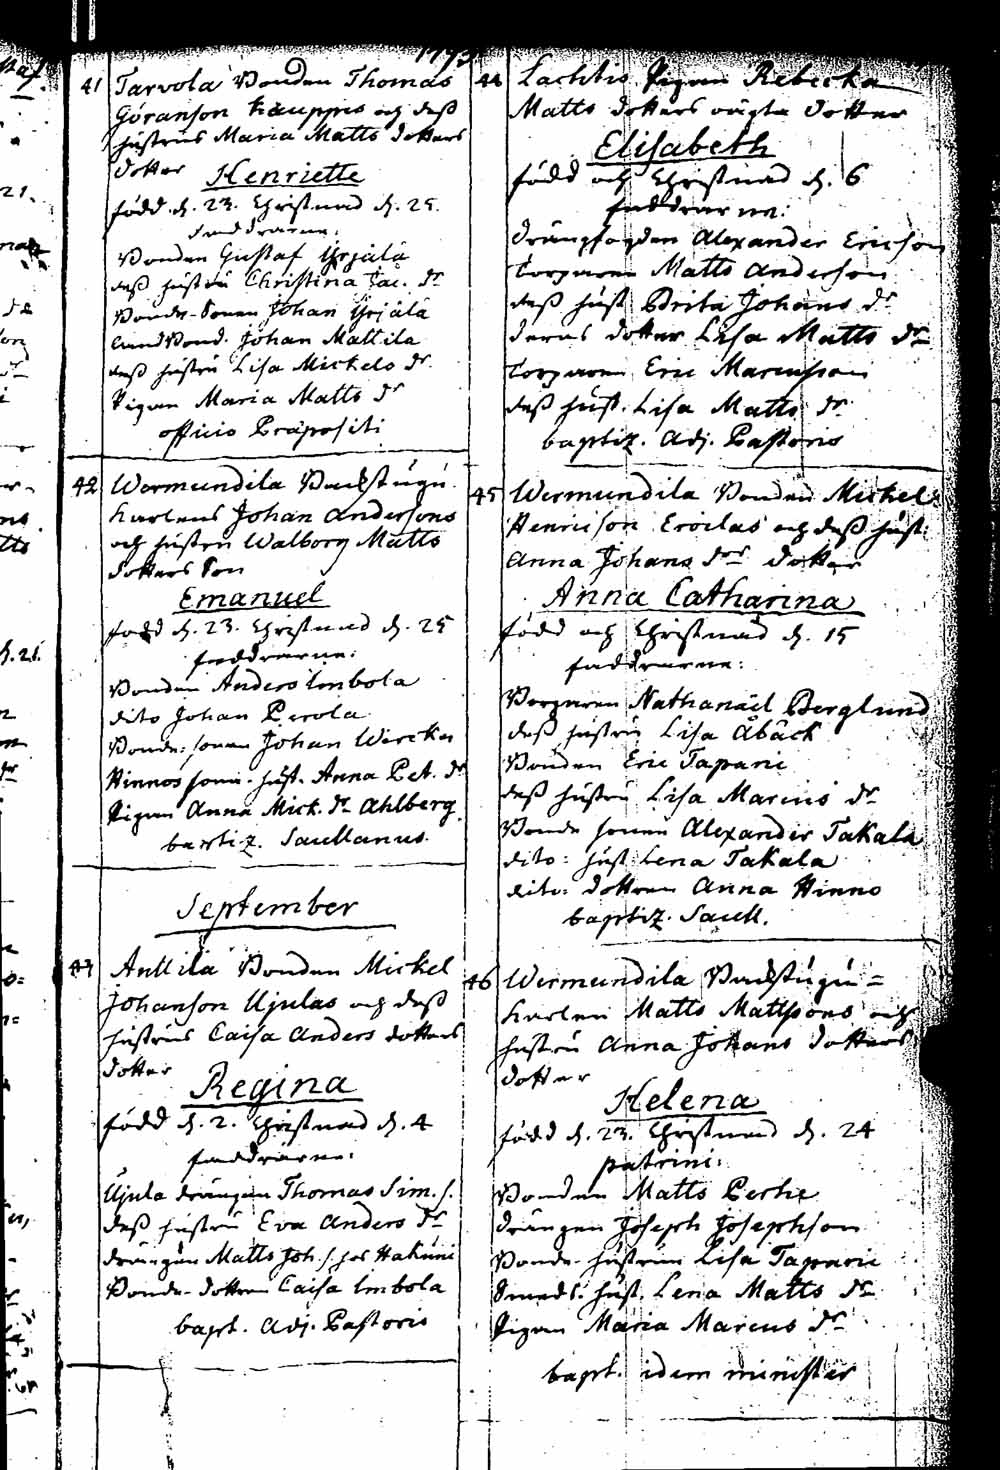 1773
41 Tarvola Bonden Thomas
Göranson Kauppis och deß
hustrus Maria Matts dotters
dotter Henriette
född d. 23. Christnad d. 25.
faddrarne:
Bonden Gustaf Yrjälä
deß hustru Christina Jac. dr
Bonde-Sonen Johan Yrjälä
Landbond. Johan Mattila
deß hustru Lisa Mickels dr
Pigan Maria Matts dr
officio Præpositi
42 Wermundila Backstugu
karlens Johan Andersons
och hustru Walborg Matts
dotters Son
Emanuel
född d. 23. Christnad d. 25
faddrarne:
Bonden Anders Imbola
dito Johan Perola
Bonde: sonen Johan Wircka
Hinnos sonh. hust. Anna Pet. dr
Pigan Anna Mick. dr Ahlberg
baptiz. Saxellanus.
September
43 Anttila Bonden Mickel
Johanson Ujulas och deß
hustrus Caisa Anders dotters
dotter
Regina
född d. 2. Christnad d. 4
faddrarne:
Ujula drängen Thomas Sim. s.
deß hustru Eva Anders dr
drängen Matts Joh. s. hos Hakuni
Bonde-dottren Caisa Imbola
bapt. Adj. Pastoris
44 Lachtis Pigan Rebecka
Matts dotters oägta dotter
Elisabeth
född och Christnad d. 6
faddrarne:
drängfogden Alexander Ericson
Torparen Matts Anderson
deß hust Brita Johans dr
deras dotter Lisa Matts dr
Torparen Eric Marcusson
deß hust. Lisa Matts dr
baptiz. Adj. Pastoris
45 Wermundila Bonden Mickel
Henricson Eroilas och deß hust:
Anna Johans drs dotter
Anna Catharina
född och Christnad d. 15
faddrarne:
Torparen Nathanaël Berglund
deß hustru Lisa Åbäck
Bonden Eric Tapani
deß hustru Lisa Marcus dr
Bonde sonen Alexander Takala
dito: hust Lena Takala
dito: dottren Anna Hinno
baptiz. Saxell.
46 Wermundila Backstugu=
karlen Matts Mattssons och
hustru Anna Johans dotters
dotter
Helena
född d. 23. Christnad d. 24
patrini:
Bonden Matts Perhe
drängen Joseph Josephson
Bonde-hustrun Lisa Tapani
Smeds. hust. Lena Matts dr
Pigan Maria Marcus dr
bapt. idem minister